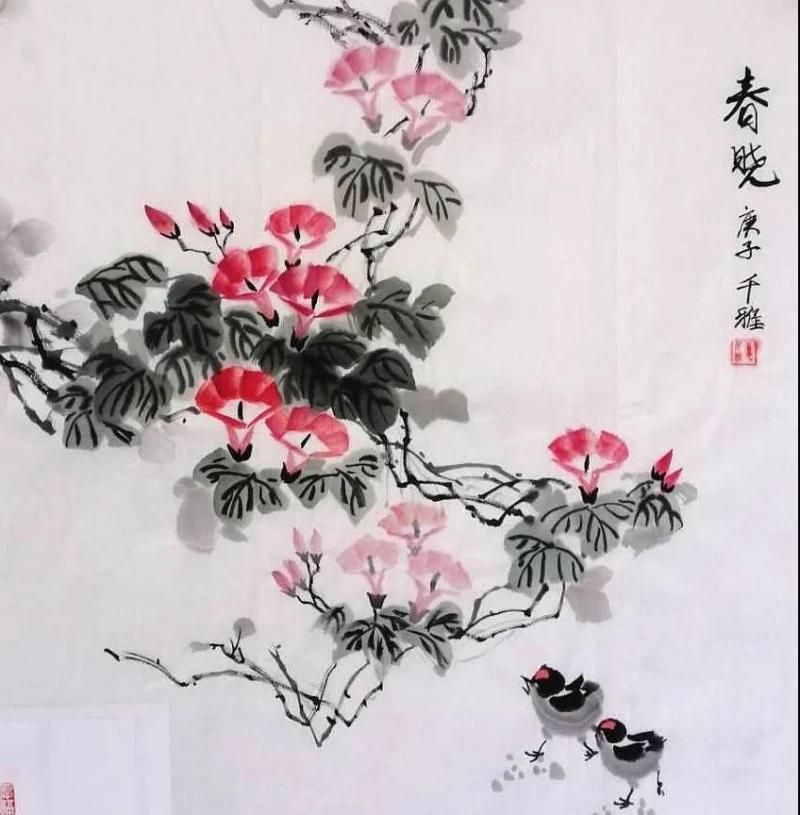 春晓
庚子 千雅